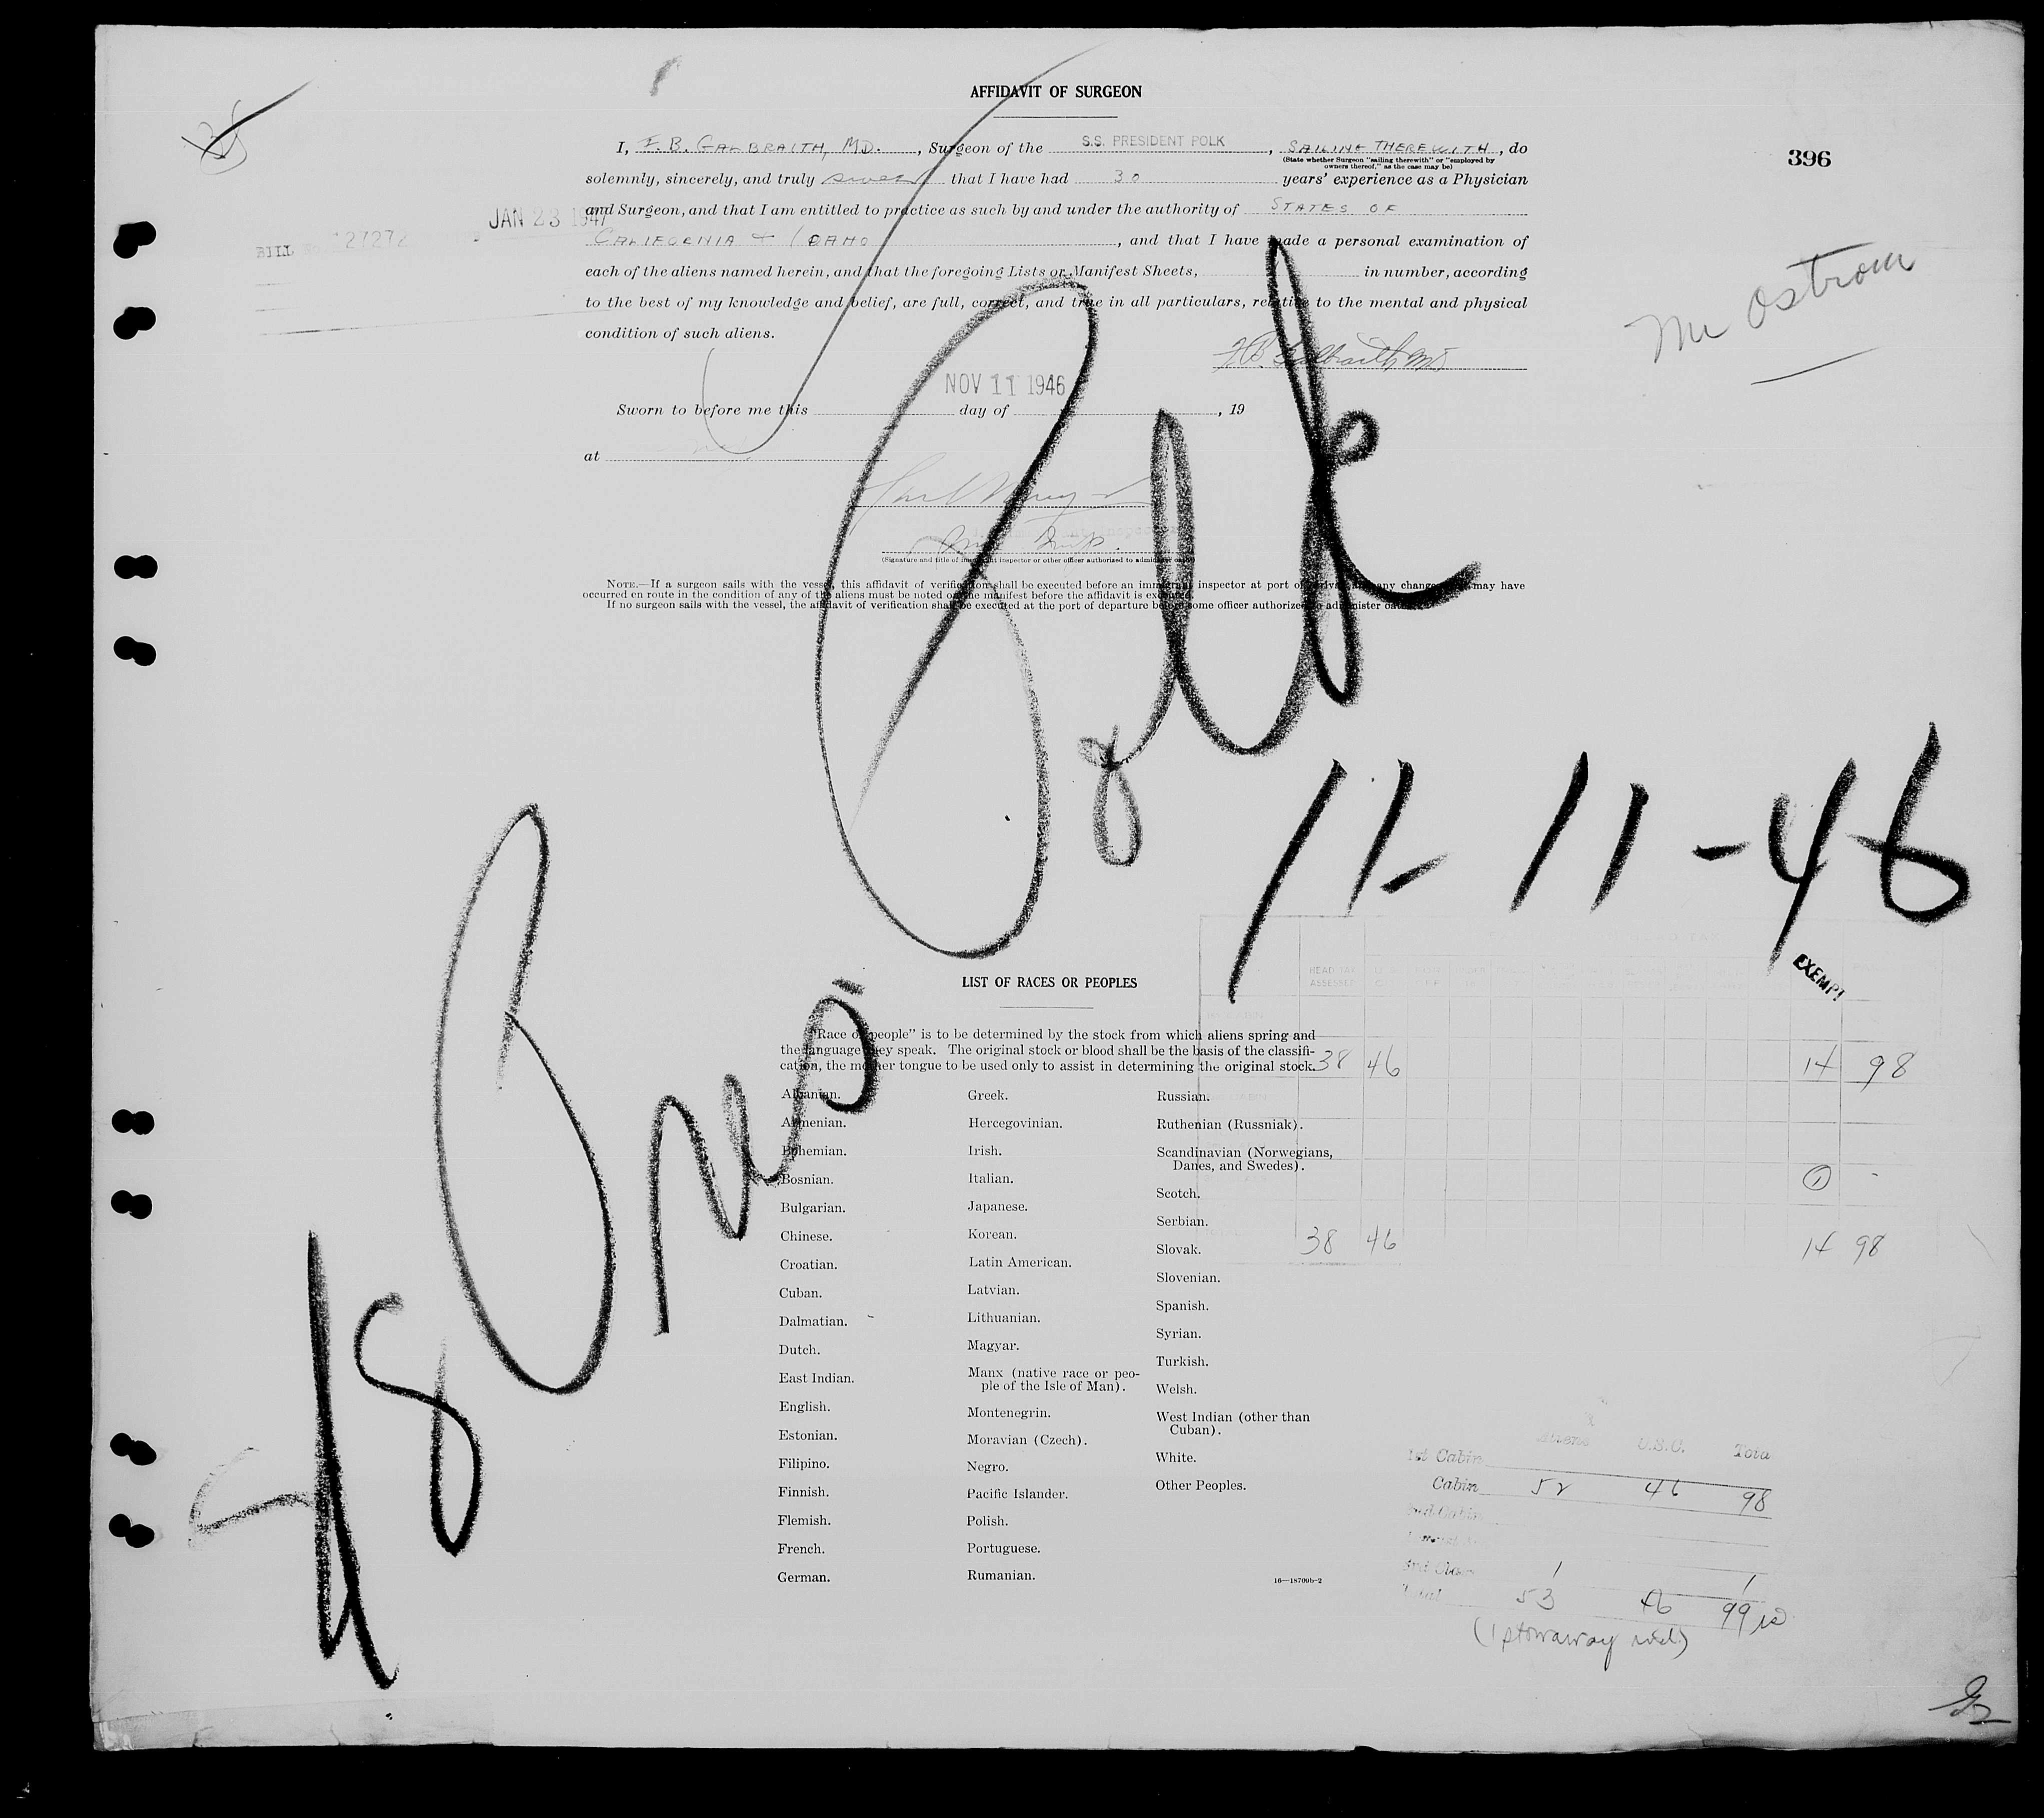 AFFIDAVIT OF SURGEON
396
I, F. B. GALBRAITH, MD. , Surgeon of the S.S. PRESIDENT POLK , SAILING THEREWITH , do
(State whether Surgeon "sailing therewith" or "employed by
owners thereof," as the case may be)
solemnly, sincerely, and truly swear that I have had 30 years' experience as a Physician
and Surgeon, and that I am entitled to practice as such by and under the authority of STATES OF
JAN 23 1947
BILL
CALIFORNIA & IDAHO , and that I have made a personal examination of
each of the aliens named herein, and that the foregoing Lists or Manifest Sheets, in number, according
to the best of my knowledge and belief, are full, correct, and true in all particulars, relative to the mental and physical
condition of such aliens.
Mr Ostrom
F.B. Galbraith MD
NOV 11 1946
Sworn to before me this day of , 19
at
(Signature and title of immigrant inspector or other officer authorized to administer oaths)
NOTE.—If a surgeon sails with the vessel, this affidavit of verification shall be executed before an immigrant inspector at port of arrival, any change may have
occurred en route in the condition of any of the aliens must be noted on the manifest before the affidavit is executed.
If no surgeon sails with the vessel, the affidavit of verification shall be executed at the port of departure before some officer authorized to administer oaths.
Polk
11-11-46
S/S Pres
EXEMPT
HEAD TAX
ASSESSED
38 46 14 98
1 -
38 46 14 98
LIST OF RACES OR PEOPLES
"Race or people" is to be determined by the stock from which aliens spring and
the language they speak. The original stock or blood shall be the basis of the classifi-
cation, the mother tongue to be used only to assist in determining the original stock.
Albanian.
Armenian.
Bohemian.
Bosnian.
Bulgarian.
Chinese.
Croatian.
Cuban.
Dalmatian.
Dutch.
East Indian.
English.
Estonian.
Filipino.
Finnish.
Flemish.
French.
German.
Greek.
Hercegovinian.
Irish.
Italian.
Japanese.
Korean.
Latin American.
Latvian.
Lithuanian.
Magyar.
Manx (native race or peo-
ple of the Isle of Man).
Montenegrin.
Moravian (Czech).
Negro.
Pacific Islander.
Polish.
Portuguese.
Rumanian.
Russian.
Ruthenian (Russniak).
Scandinavian (Norwegians,
Danes, and Swedes).
Scotch.
Serbian.
Slovak.
Slovenian.
Spanish.
Syrian.
Turkish.
Welsh.
West Indian (other than
Cuban).
White.
Other Peoples.
16—18709b-2
Aliens U.S.C. Tota
1st Cabin
Cabin 52 46 98
2nd Cabin
3rd Class 1 1
Total 53 46 99
(1 stowaway incl)